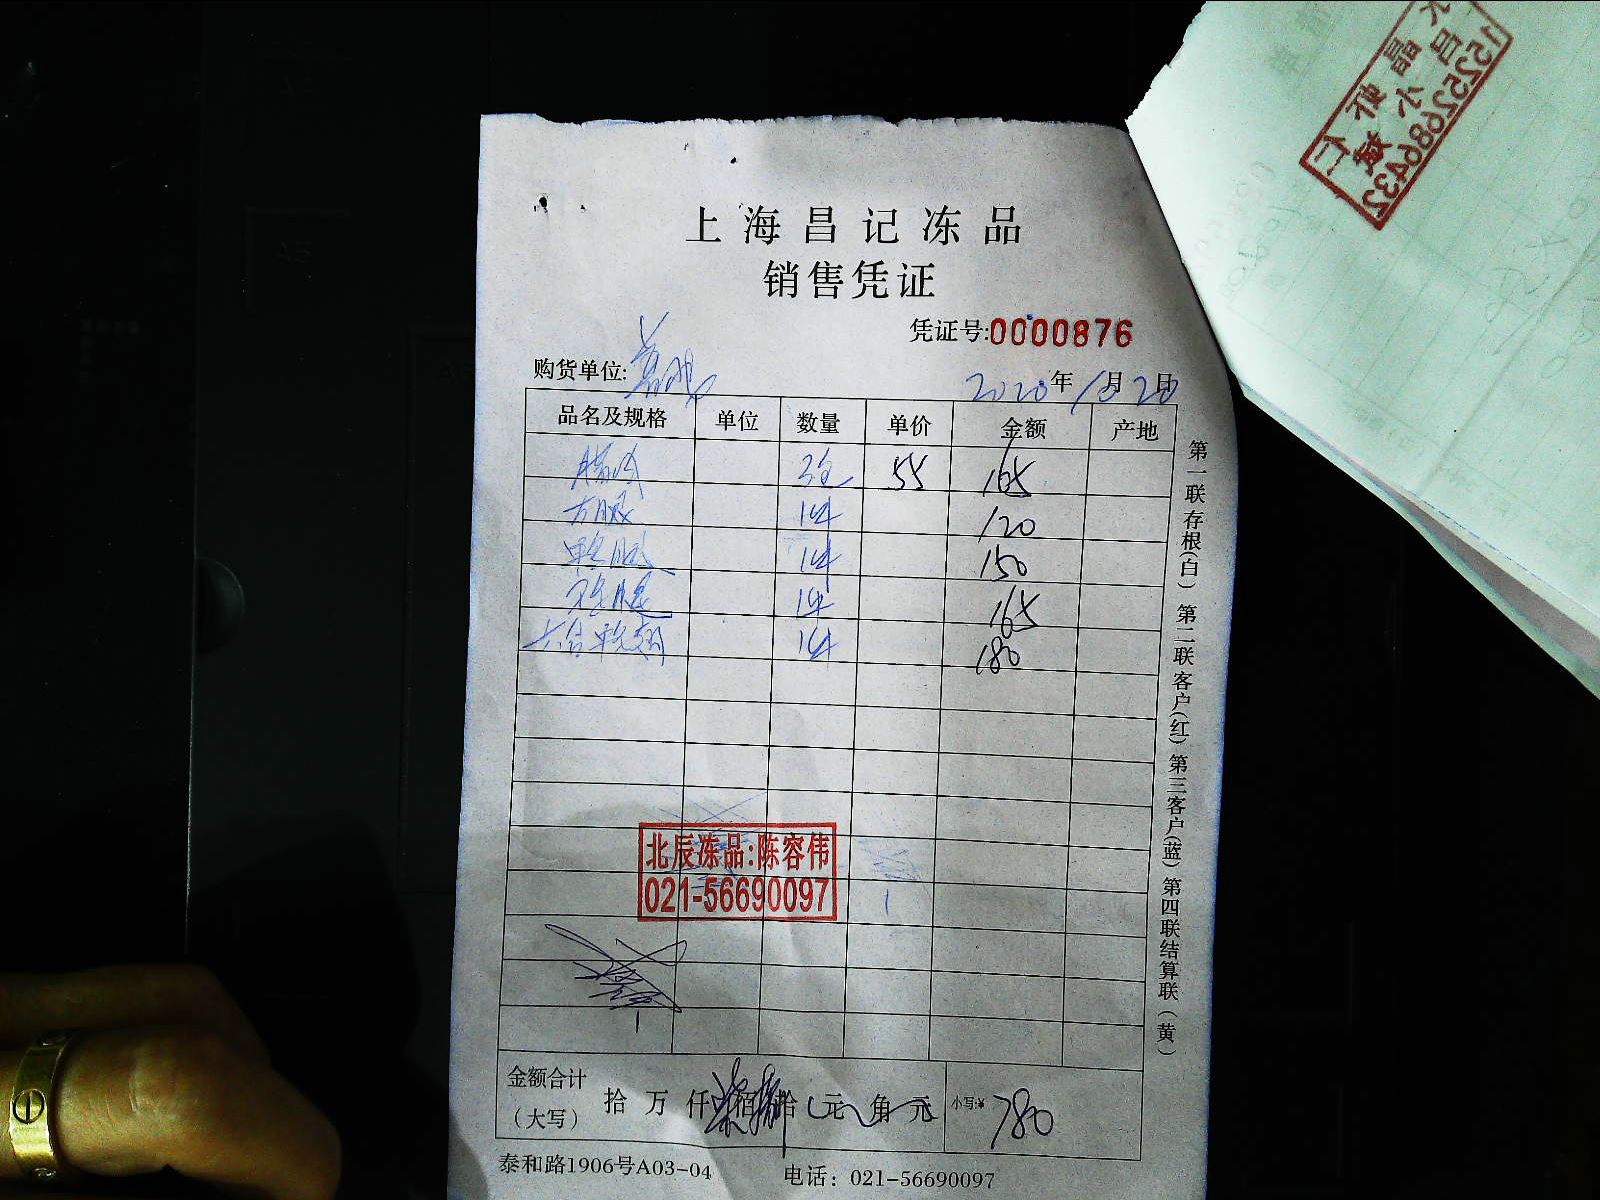 上海昌记冻品
销售凭证
凭证号:0000876
购货单位:
2020年10月20日
品名及规格 单位 数量 单价 金额 产地
3包 55 165
方腿 1件 120
1件 150
1件 165
1件 180
北辰冻品:陈容伟
021-56690097
金额合计
（大写） 拾 万 仟 柒佰捌拾 元 角 元 小写:¥ 780
泰和路1906号A03-04 电话：021-56690097
第一联存根(白) 第二联客户(红) 第三客户(蓝) 第四联结算联(黄)
15252686432